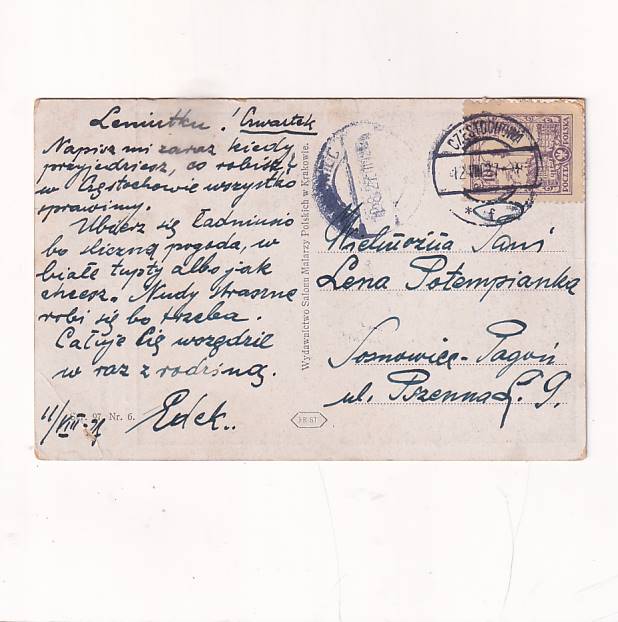 Leniutku! Czwartek
Napisz mi zaraz kiedy
przyjedziesz, co robisz,
w Częstochowie wszystko
sprawimy.
Ubierz się ładniusio
bo śliczną pogoda, w
białe łupty albo jak
chcesz. Nudy straszne
robi się bo trzeba.
Całuje Cię wszędzie
w raz z rodziną.
Edek..
11/VIII
Nr. 6.
Wydawnictwo Salonu Malarzy Polskich w Krakowie.
CZĘSTOCHOWA
POLSKA
Wielmożna Pani
Lena Potempianka
Sosnowiec-Pagoń
ul. Pszenna L. 9.